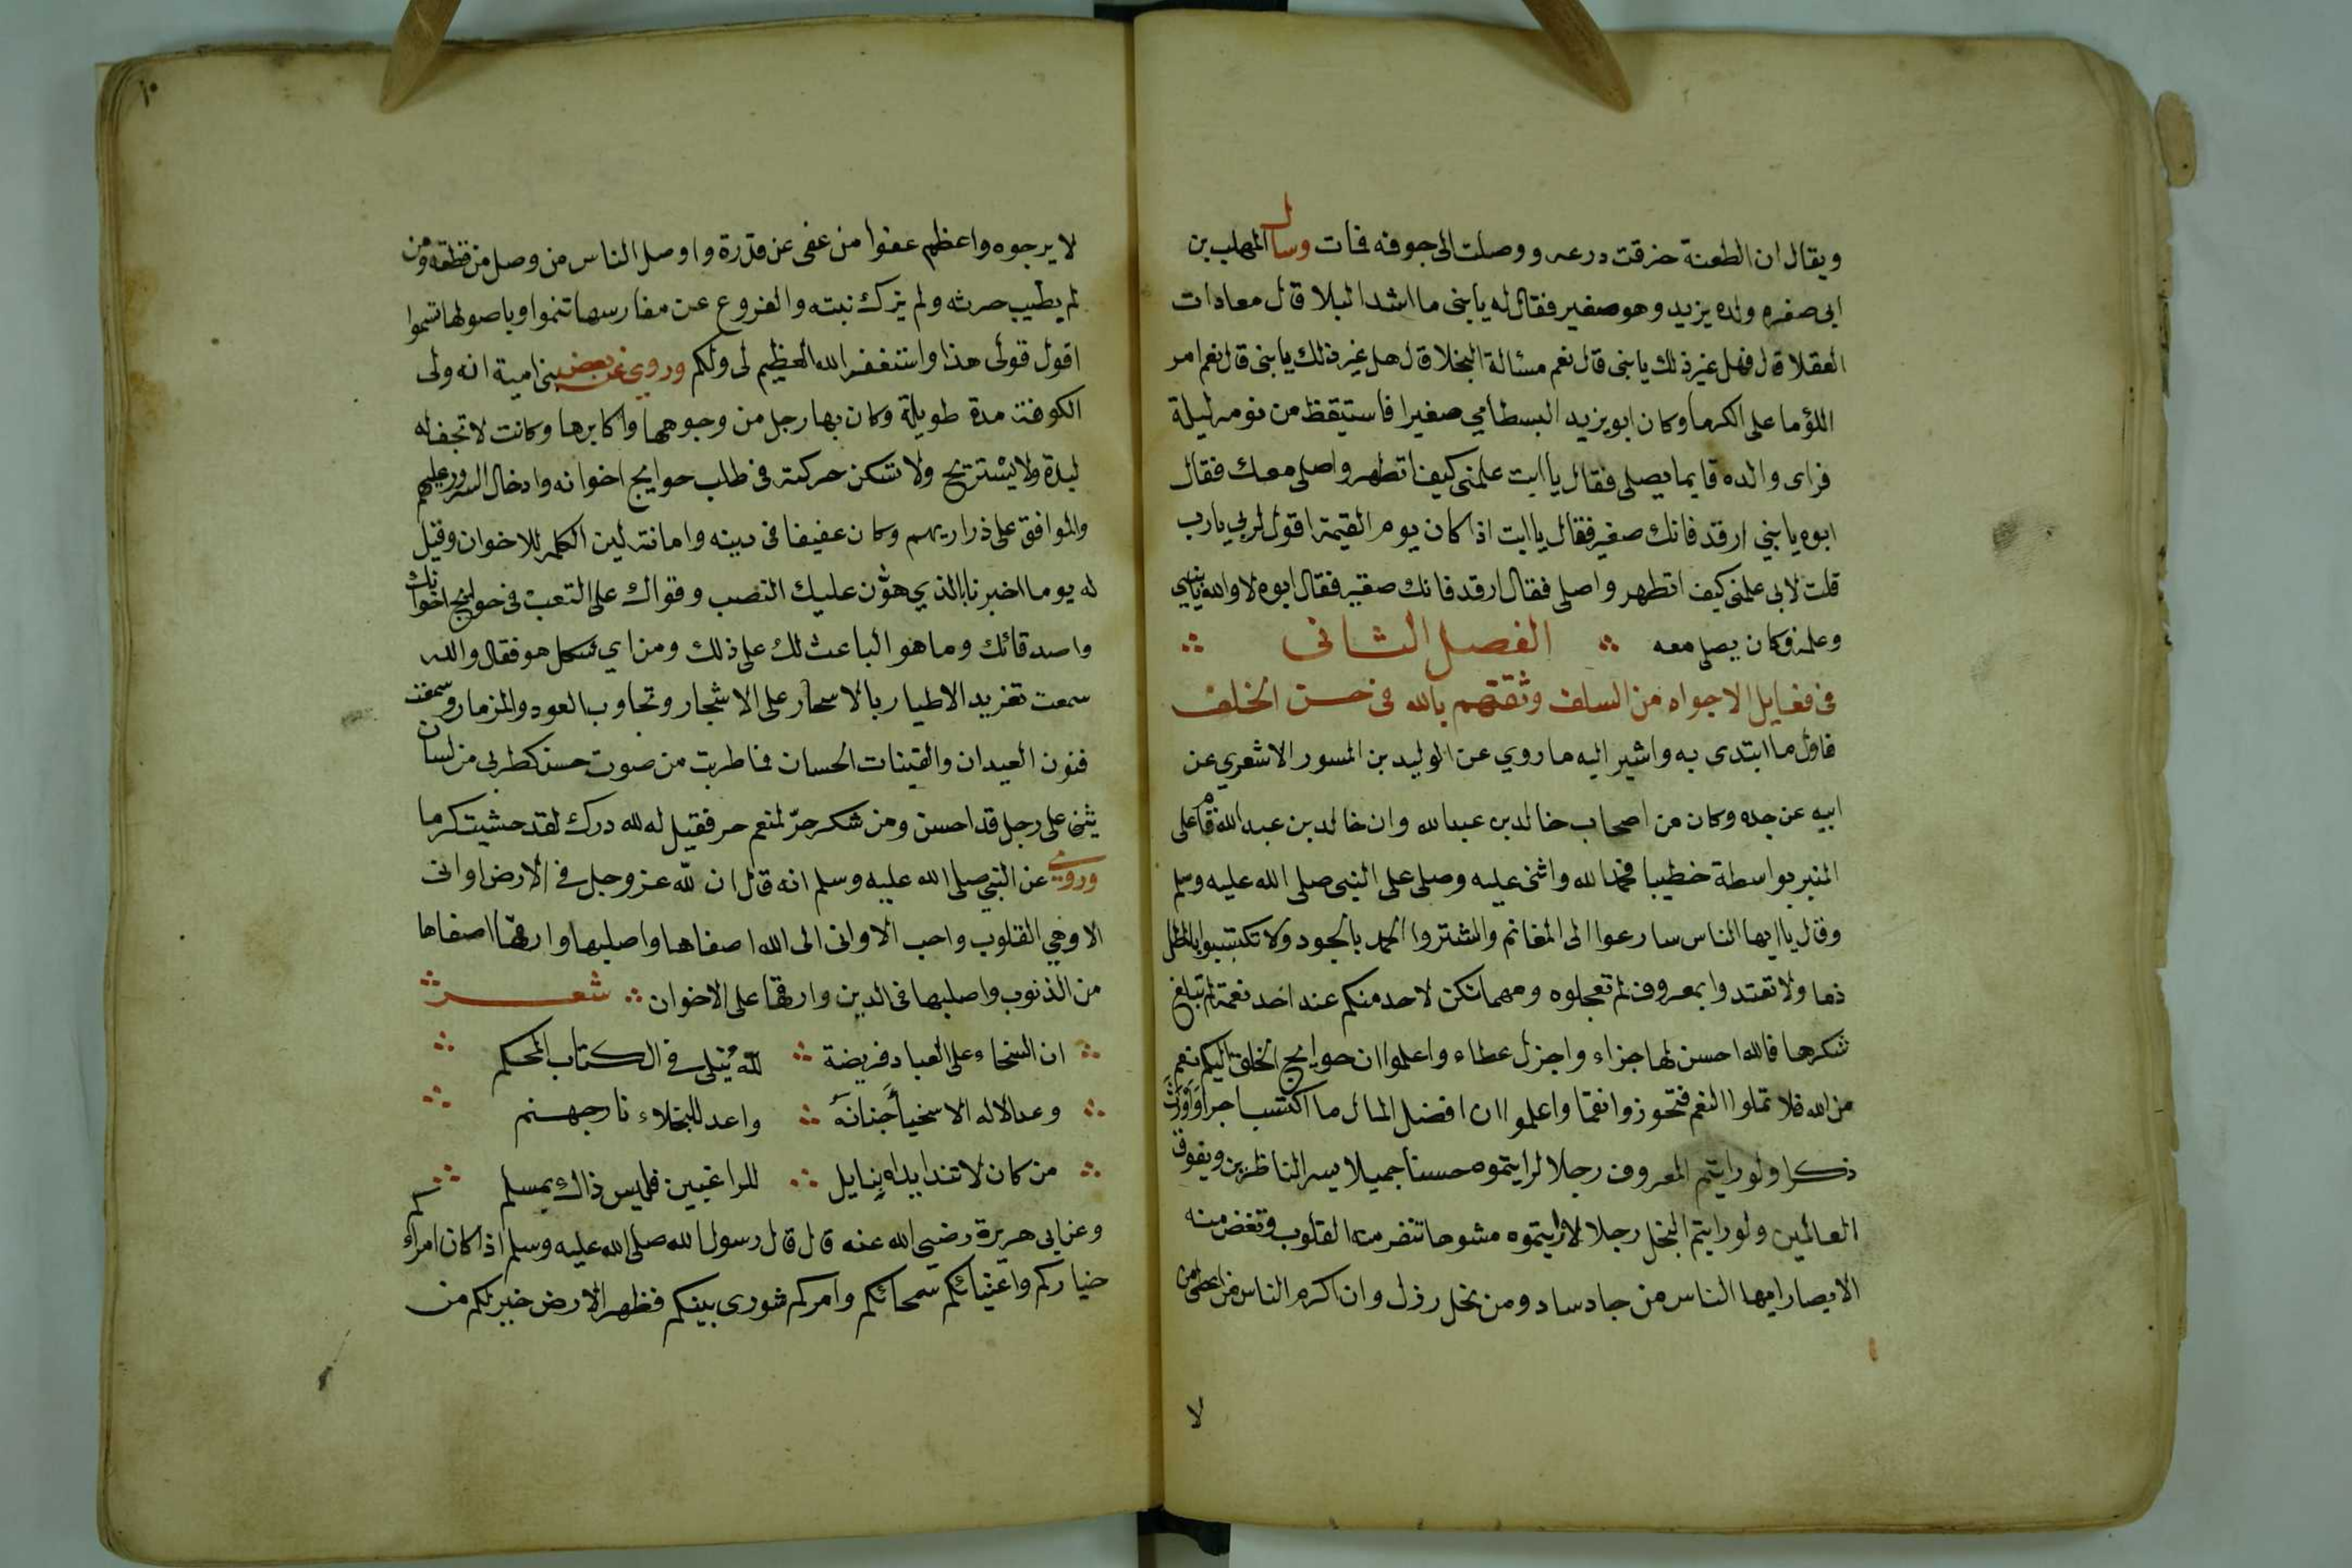 ويقال ان الطعنة خزقت درعه ووصلت الى جوفه فمات وسال المهلب بن
ابى صفره ولده يزيد وهو صغير فقال له يا بنى ما اشد البلا قال معادات
العقلا قال فهل غير ذلك يا بنى قال نعم مسئالة البخلا قال هل غير ذلك يا بنى قال نعم امر
اللؤما على الكرما وكان ابو يزيد البسطامي صغيرا فاستيقظ من نومه ليلة
فراى والده قايما يصلى فقال يا ابت علمنى كيف اتطهر واصلى معك فقال
ابوه يا بني ارقد فانك صغير فقال يا ابت اذا كان يوم القيمة اقول لربي يارب
قلت لابى علمنى كيف اتطهر واصلى فقال ارقد فانك صغير فقال ابوه لا والله يا بني
وعلمه وكان يصلى معه الفصل الثانى
فى فعايل الاجواد من السلف وثقتهم بالله فى حسن الخلف
فاول ما ابتدى به واشير اليه ما روي عن الوليد بن المسور الاشعري عن
ابيه عن جده وكان من اصحاب خالد بن عبد الله وان خالد بن عبد الله قام على
المنبر بواسطة خطيبا فحمد الله واثنى عليه وصلى على النبى صلى الله عليه وسلم
وقال يا ايها الناس سارعوا الى المغانم والشتروا الحمد بالجود ولا تكتسبوا بالمطل
ذما ولا تعتدوا بمعروف لم تعجلوه ومهما تكن لاحد منكم عند احد نعمة لم تبلغ
شكرها فالله احسن لها جزاء واجزل عطاء واعلموا ان حوايج الخلق اليكم نعم
من الله فلا تملوا النعم فتحوز وانقما واعلموا ان افضل المال ما اكتسب اجرا واورث
ذكرا ولو رايتم المعروف رجلا لرايتموه حسنا جميلا يسر الناظرين ويفوق
العالمين ولو رايتم البخل رجلا لارايتموه مشوها تنفر منه القلوب وتغض منه
الابصار ايها الناس من جاد ساد ومن بخل رذل وان اكرم الناس من اعطى من
لا
١٠
لا يرجوه واعظم عفوا من عفى عن قدرة واوصل الناس من وصل من قطعه ومن
لم يطيب حرثه ولم يزك نبته والفروع عن مغارسها تنموا وباصولها تسموا
اقول قولى هذا واستغفر الله العظيم لى ولكم وروي عن بعض بنى امية انه ولى
الكوفة مدة طويلة وكان بها رجل من وجوهها واكابرها وكانت لا تجف له
لبدة ولا يسْتريح ولا تسكن حركته فى طلب حوايج اخوانه وادخال السرور عليهم
والموافق على ذراريهم وكان عفيفا فى دينه وامانته لين الكلمة للاخوان وقيل
له يوما اخبرنا بالذي هوّن عليك النصب وقواك على التعب فى حوايج اخوانك
واصدقائك وما هو الباعث لك على ذلك ومن اي شكل هو فقال والله
سمعت تغريد الاطيار بالاسحار على الاشجار وتجاوب العود والمزمار وسمعت
فنون العيدان والقينات الحسان فما طربت من صوت حسن كطربى من لسان
يثنى على رجل قد احسن ومن شكر حرّ لمنعم حر فقيل له لله درك لقد حشيت كرما
وروي عن النبي صلى الله عليه وسلم انه قال ان لله عز وجل في الارض اوانى
الا وهي القلوب واحب الاوانى الى الله اصفاها واصلبها وارقّها اصفاها
من الذنوب واصلبها فى الدين وارقها على الاخوان شعر
ان السخاء على العباد فريضة لله يُتلى في الكتاب المحكم
وعد الاله الاسخيا جَنانهَ واعد للبخلاء نار جهنم
من كان لا تندا يداه بنايل للراغبين فليس ذاك بمسلم
وعن ابى هريرة رضي الله عنه قال قال رسول الله صلى الله عليه وسلم اذا كان امراءكم
خياركم واغنيائكم سمحائكم وامركم شورى بينكم فظهر الارض خير لكم من